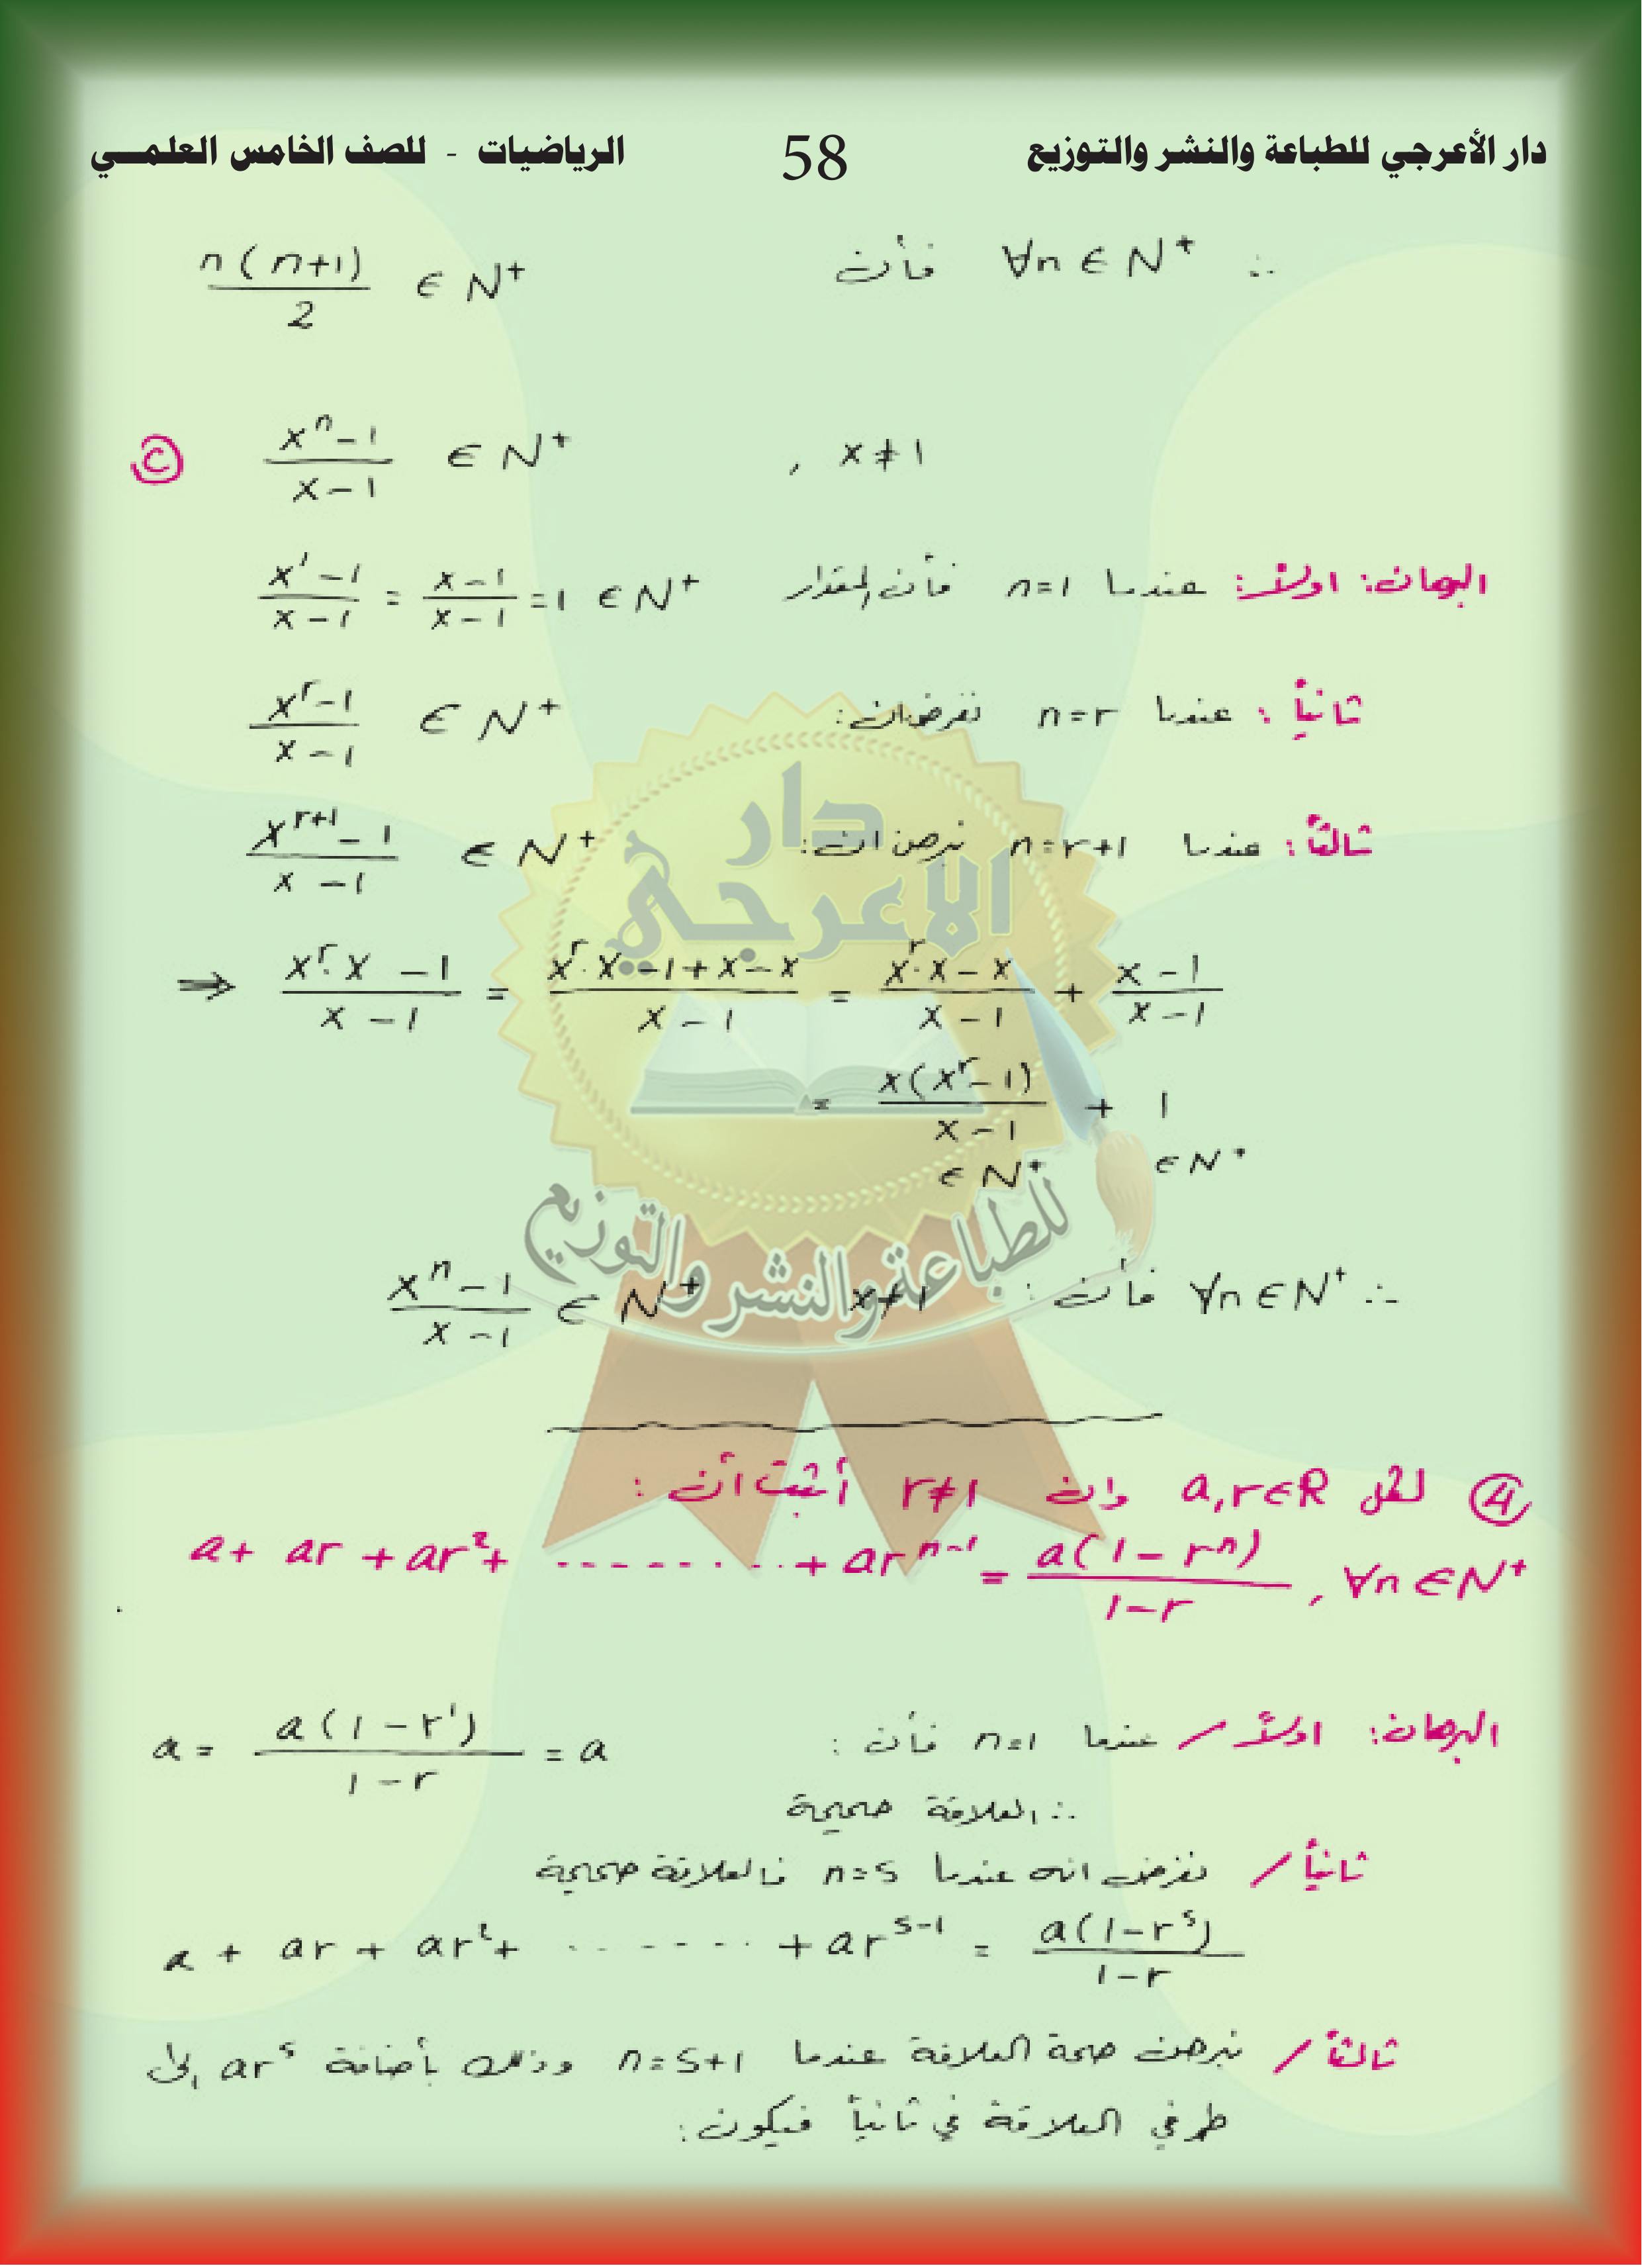 دار الأعرجي للطباعة والنشر والتوزيع 58 الرياضيات - للصف الخامس العلمـــي
∴ ∀n ∈ N⁺ فأن n(n+1)/2 ∈ N⁺
ⓒ (xⁿ-1)/(x-1) ∈ N⁺ , x≠1
البرهان: اولاً: عندما n=1 فأن المقدار (x¹-1)/(x-1) = (x-1)/(x-1) = 1 ∈ N⁺
ثانياً: عندما n=r نفرض ان: (xʳ-1)/(x-1) ∈ N⁺
ثالثاً: عندما n=r+1 نبرهن ان: (xʳ⁺¹-1)/(x-1) ∈ N⁺
⇒ (xʳ·x -1)/(x-1) = (xʳ·x-1+x-x)/(x-1) = (xʳ·x-x)/(x-1) + (x-1)/(x-1)
= x(xʳ-1)/(x-1) + 1
∈ N⁺ ∈ N⁺
∴ ∀n ∈ N⁺ فأن: x≠1 (xⁿ-1)/(x-1) ∈ N⁺
④ لكل a,r∈R وان r≠1 أثبت أن:
a + ar + ar² + ......... + arⁿ⁻¹ = a(1-rⁿ)/(1-r) , ∀n ∈ N⁺
البرهان: اولاً/ عندما n=1 فأن: a = a(1-r¹)/(1-r) = a
∴ العلاقة صحيحة
ثانياً/ نفرض انه عندما n=s فالعلاقة صحيحة
a + ar + ar² + ....... + arˢ⁻¹ = a(1-rˢ)/(1-r)
ثالثاً/ نبرهن صحة العلاقة عندما n=s+1 وذلك بأضافة arˢ الى
طرفي العلاقة في ثانياً فيكون:
دار
الاعرجي
للطباعة والنشر والتوزيع